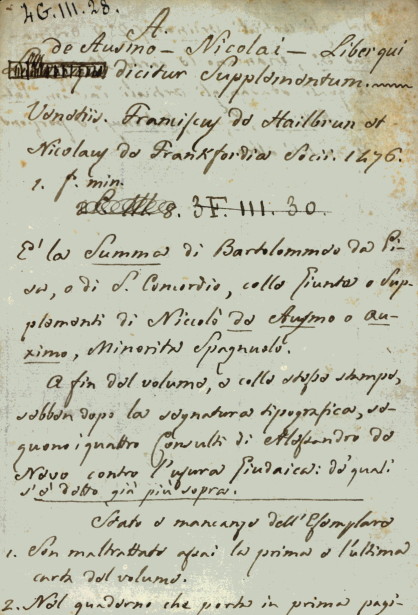 4G.III.28.
A.
de Ausino - Nicolai - Liber qui
dicitur Supplementum.
Venetiis. Franciscus de Hailbrun et
Nicolaus de Frankfordia Socii. 1476.
1. f. min.
8. 3F.III.30.
E' la Summa di Bartolommeo da Pi-
sa, o di S. Concordio, colle Giunte o Sup-
plementi di Niccolò de Ausmo o Au-
ximo, Minorita Spagnuolo.
A fin del volume, e colla stessa stampa,
sebben dopo la segnatura tipografica, se-
guono i quattro Consulti di Alessandro de
Nevo contro l'usura Giudaica: de' quali
s'è detto già più sopra.
Stato e mancanze dell'Esemplare
1. Son maltrattate assai la prima e l'ultima
carta del volume.
2. Nel quaderno che porta in prima pagi-